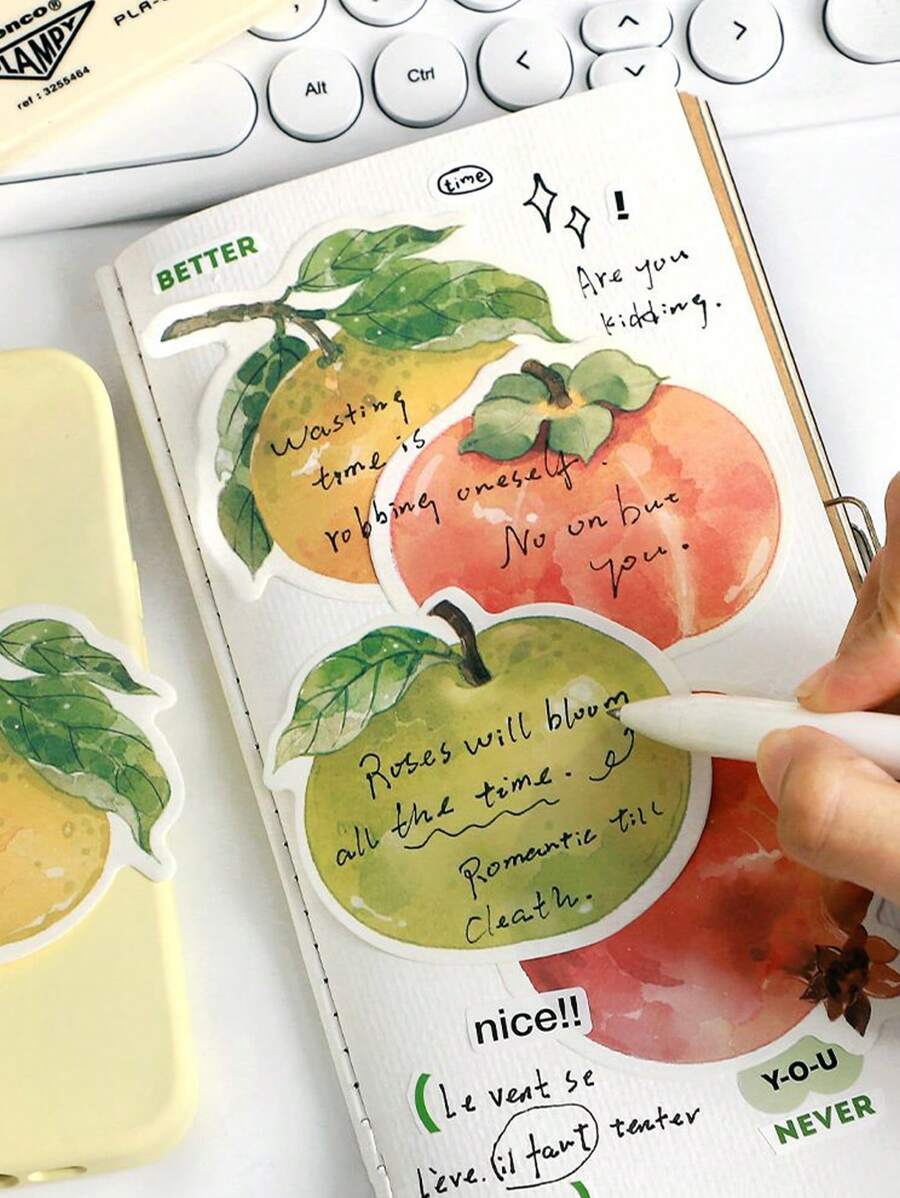 enco®
LAMPY
PLA-
ref : 3255464
Alt
Ctrl
<
^
>
time
!
BETTER
Are you
kidding.
Wasting
time is
robbing oneself.
No un but
you.
Roses will bloom
all the time.
Romantic till
Cleath.
nice!!
(Le vent se
Y-O-U
l'ève. il faut tenter
NEVER
)